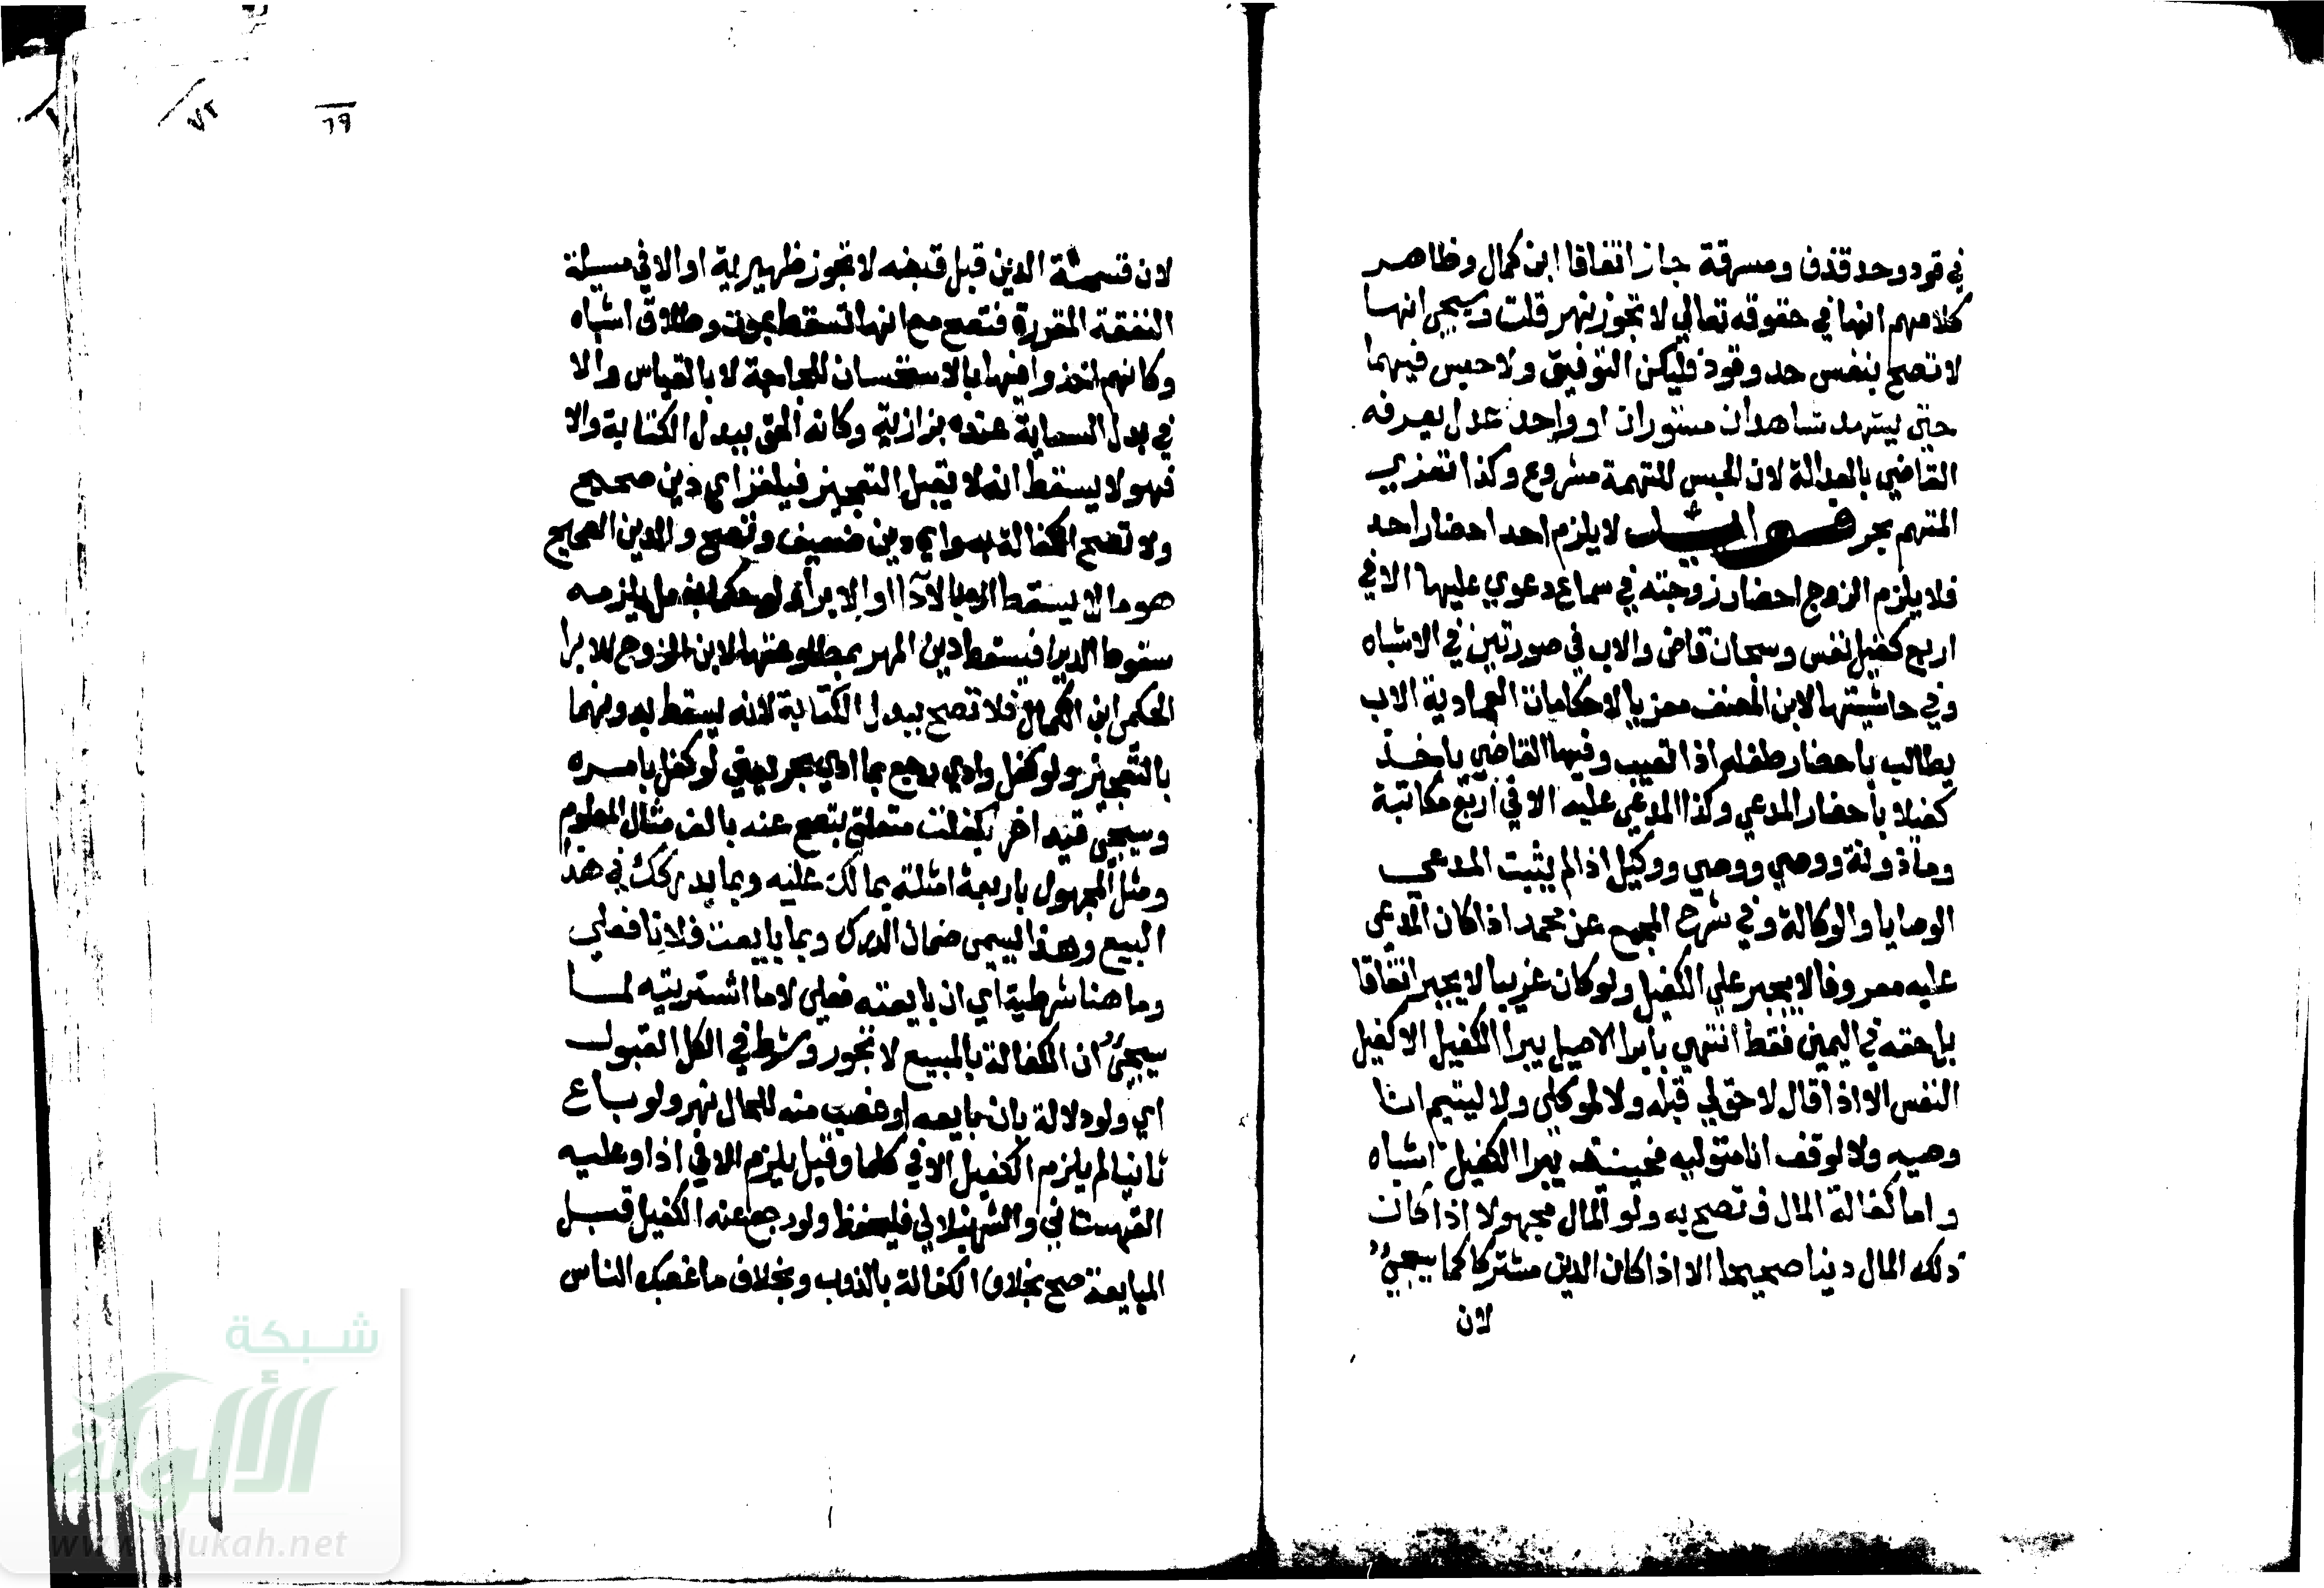 في قود وحد قذف وسرقة جاز اتفاقا ابن كمال وظاهر
كلامهم انها في حقوقه تعالي لا تجوز نهر قلت وسيجي انها
لا تصح بنفس حد وقود فليكن التوفيق ولا حبس فيهما
حتي يشهد شاهدان مستوران او واحد عدل يعرفه
القاضي بالعدالة لان الحبس للتهمة مشروع وكذا تعزير
المتهم بحر لا يلزم احد احضار احد
فلا يلزم الزوج احضار زوجته في سماع دعوي عليها الا في
اربع كفيل نفس وسجان قاض والاب في صورتين في الاشباه
وفي حاشيتها لابن المصنف معزيا لاحكامات العمادية الاب
يطالب باحضار طفله اذا تغيب وفيها القاضي ياخذ
كفيلا باحضار المدعي وكذا المدعي عليه الا في اربع مكاتبة
وماذونة ووصي ووصي ووكيل اذا لم يثبت المدعي
الوصايا والوكالة وفي شرح المجمع عن محمد اذا كان المدعي
عليه معروفا لا يجبر علي الكفيل ولو كان غريبا لا يجبر اتفاقا
بل حقه في اليمين فقط انتهي بابرا الاصيل يبرا الكفيل الا كفيل
النفس الا اذا قال لا حق لي قبله ولا لموكلي ولا ليتيم انا
وصيه ولا لوقف انا متوليه فحينئذ يبرا الكفيل اشباه
واما كفالة المال فتصح به ولو المال مجهولا اذا كان
ذلك المال دينا صحيحا الا اذا كان الدين مشتركا كما سيجيء
لان
٦٩
٧٢
لان قسمة الدين قبل قبضه لا تجوز ظهيرية او الا في مسيلة
النفقة المقررة فتصح مع انها تسقط بموت وطلاق اشباه
وكانهم اخذوا فيها بالاستحسان للحاجة لا بالقياس والا
في بدل السعاية عنده بزازية وكانه الحق ببدل الكتابة والا
فهو لا يسقط انه لا يقبل التعجيز فيلغز اي دين صحيح
ولا تصح الكفالة به واي دين ضعيف وتصح والدين الصحيح
هو ما لا يسقط الا بالادا او الابراء ولو حكما بفعل يلزمه
سقوط الدين فيسقط دين المهر بمطاوعتها لابن الزوج للابرا
الحكمي ابن الكمال فلا تصح ببدل الكتابة لانه يسقط بدونهما
بالتعجيز ولو كفل وادي رجع بما ادي بحر يعني لو كفل بامره
وسيجي قيد اخر بكفلت متعلق بتصح عنه بالف مثال المعلوم
ومثل المجهول باربعة امثلة بما لك عليه وبما يدركك في هذا
البيع وهذا يسمي ضمان الدرك وبما بايعت فلانا فعلي
وما هنا شرطية اي ان بايعته فعلي لا ما اشتريته لما
سيجيء ان الكفالة بالمبيع لا تجوز وشرط في الكل القبول
اي ولو دلالة بان بايعه او غصب منه للحال نهر ولو باع
ثانيا لم يلزم الكفيل الا في كلما وقيل يلزم الا في اذا وعليه
القهستاني والشرنبلالي فليحفظ ولو رجع عنه الكفيل قبل
المبايعة صح بخلاف الكفالة بالذوب وبخلاف ما غصبك الناس
شبكة
الألوكة
www.alukah.net